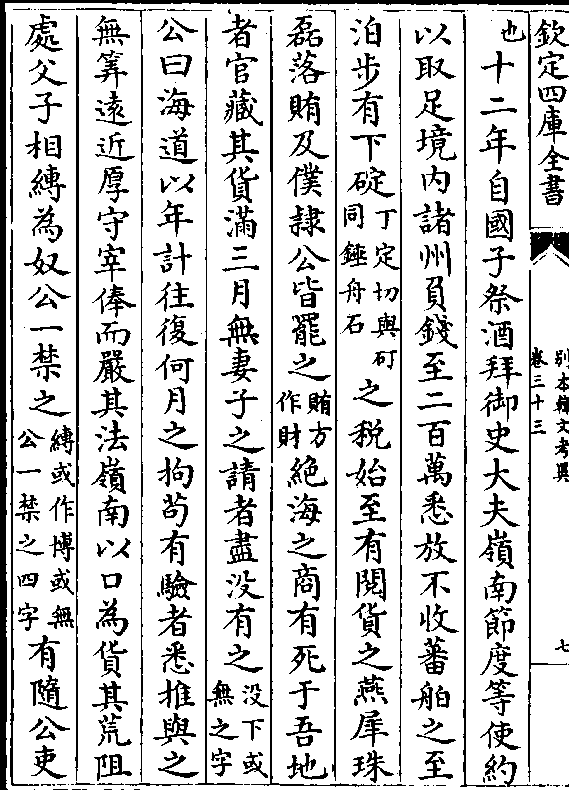 欽定四庫全書
別本韓文考異
卷三十三
七
也十二年自國子祭酒拜御史大夫嶺南節度等使約
以取足境內諸州負錢至二百萬悉放不收蕃舶之至
泊步有下碇丁定切與矴同錘舟石之税始至有閱貨之燕犀珠
磊落賄及僕隷公皆罷之賄方作財絶海之商有死于吾地
者官藏其貨滿三月無妻子之請者盡没有之没下或無之字
公曰海道以年計往復何月之拘苟有驗者悉推與之
無筭遠近厚守宰俸而嚴其法嶺南以口為貨其荒阻
處父子相縛為奴公一禁之縛或作博或無公一禁之四字有隨公吏